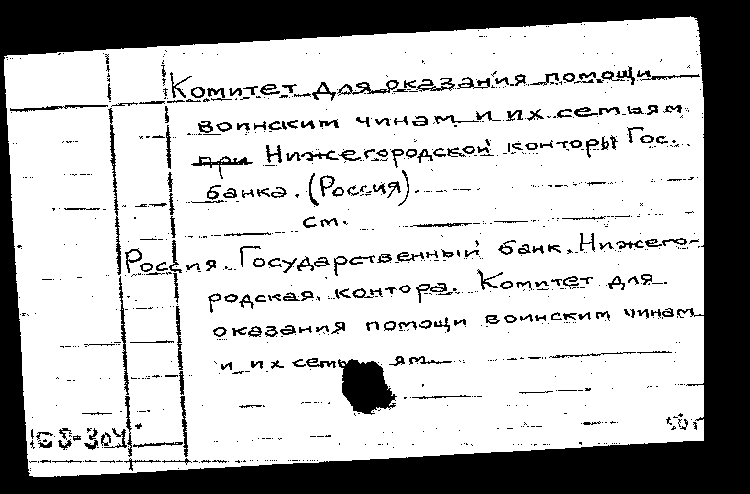 Комитет для оказания помощи
воинским чинам и их семьям
при Нижегородской конторы Гос.
банка. (Россия).
см.
Россия. Государственный банк. Нижего-
родская контора. Комитет для
оказания помощи воинским чинам
и их семьям.